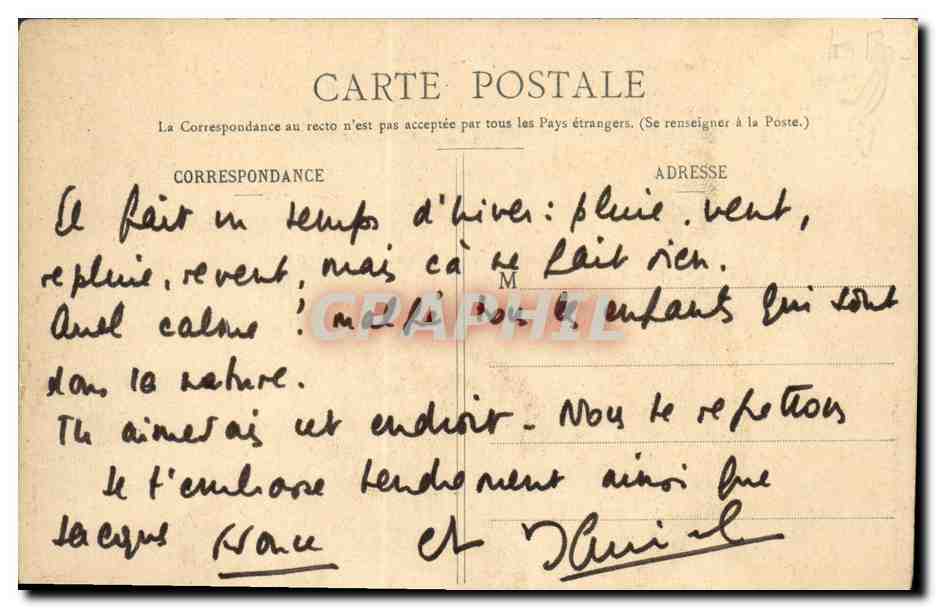 CARTE POSTALE
La Correspondance au recto n'est pas acceptée par tous les Pays étrangers. (Se renseigner à la Poste.)
CORRESPONDANCE
ADRESSE
Il fait un temps d'hiver : pluie, vent,
repluie, revent, mais çà ne fait rien.
M
Quel calme ! malgré tous les enfants qui sont
dans la nature.
Tu aimerais cet endroit - Nous te regrettons
Je t'embrasse tendrement ainsi que
Jacques France et
GRAPHIL